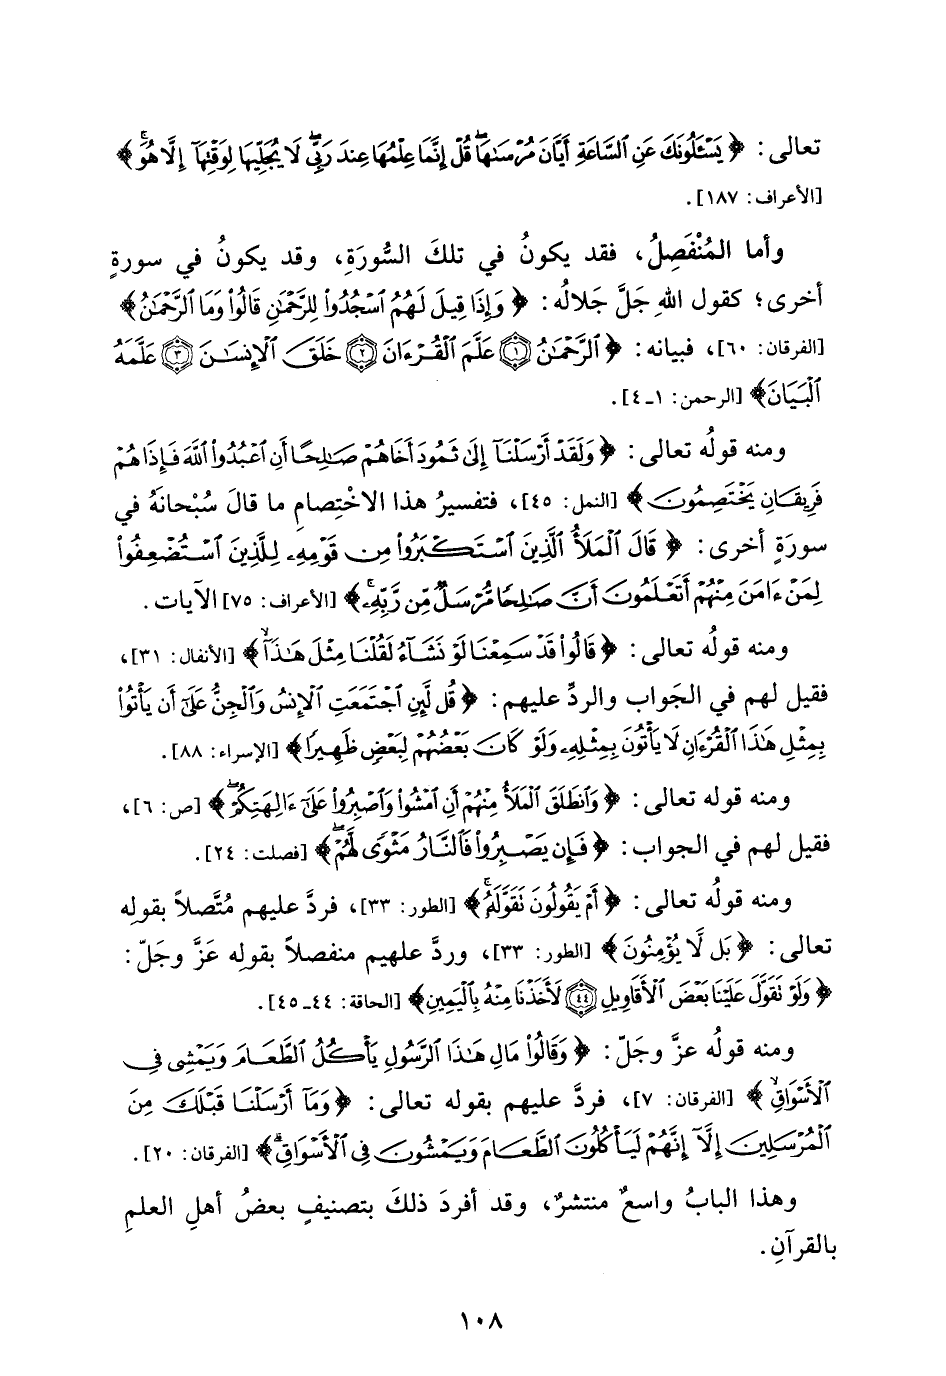 تعالى: ﴿يَسْـَٔلُونَكَ عَنِ ٱلسَّاعَةِ أَيَّانَ مُرْسَىٰهَا ۖ قُلْ إِنَّمَا عِلْمُهَا عِندَ رَبِّى ۖ لَا يُجَلِّيهَا لِوَقْتِهَآ إِلَّا هُوَ ۚ﴾
[الأعراف: ١٨٧].
وأما المُنْفَصِلُ، فقد يكونُ في تلكَ السُّورَةِ، وقد يكونُ في سورةٍ
أخرى؛ كقول اللهِ جَلَّ جَلالُه: ﴿وَإِذَا قِيلَ لَهُمُ ٱسْجُدُوا۟ لِلرَّحْمَٰنِ قَالُوا۟ وَمَا ٱلرَّحْمَٰنُ﴾
[الفرقان: ٦٠]، فبيانه: ﴿ٱلرَّحْمَٰنُ ۝١ عَلَّمَ ٱلْقُرْءَانَ ۝٢ خَلَقَ ٱلْإِنسَٰنَ ۝٣ عَلَّمَهُ
ٱلْبَيَانَ﴾ [الرحمن: ١ـ٤].
ومنه قولُه تعالى: ﴿وَلَقَدْ أَرْسَلْنَآ إِلَىٰ ثَمُودَ أَخَاهُمْ صَٰلِحًا أَنِ ٱعْبُدُوا۟ ٱللَّهَ فَإِذَا هُمْ
فَرِيقَانِ يَخْتَصِمُونَ﴾ [النمل: ٤٥]، فتفسيرُ هذا الاخْتِصامِ ما قالَ سُبْحانَهُ في
سورَةٍ أخرى: ﴿قَالَ ٱلْمَلَأُ ٱلَّذِينَ ٱسْتَكْبَرُوا۟ مِن قَوْمِهِۦ لِلَّذِينَ ٱسْتُضْعِفُوا۟
لِمَنْ ءَامَنَ مِنْهُمْ أَتَعْلَمُونَ أَنَّ صَٰلِحًا مُّرْسَلٌ مِّن رَّبِّهِۦ ۚ﴾ [الأعراف: ٧٥] الآيات.
ومنه قولُه تعالى: ﴿قَالُوا۟ قَدْ سَمِعْنَا لَوْ نَشَآءُ لَقُلْنَا مِثْلَ هَٰذَآ ۙ﴾ [الأنفال: ٣١]،
فقيل لهم في الجَواب والردِّ عليهم: ﴿قُل لَّئِنِ ٱجْتَمَعَتِ ٱلْإِنسُ وَٱلْجِنُّ عَلَىٰٓ أَن يَأْتُوا۟
بِمِثْلِ هَٰذَا ٱلْقُرْءَانِ لَا يَأْتُونَ بِمِثْلِهِۦ وَلَوْ كَانَ بَعْضُهُمْ لِبَعْضٍ ظَهِيرًا﴾ [الإسراء: ٨٨].
ومنه قوله تعالى: ﴿وَٱنطَلَقَ ٱلْمَلَأُ مِنْهُمْ أَنِ ٱمْشُوا۟ وَٱصْبِرُوا۟ عَلَىٰٓ ءَالِهَتِكُمْ ۖ﴾ [ص: ٦]،
فقيل لهم في الجواب: ﴿فَإِن يَصْبِرُوا۟ فَٱلنَّارُ مَثْوًى لَّهُمْ ۖ﴾ [فصلت: ٢٤].
ومنه قولُه تعالى: ﴿أَمْ يَقُولُونَ تَقَوَّلَهُۥ ۚ﴾ [الطور: ٣٣]، فردَّ عليهم مُتَّصلاً بقولِه
تعالى: ﴿بَل لَّا يُؤْمِنُونَ﴾ [الطور: ٣٣]، وردَّ علهيم منفصلاً بقولِه عَزَّ وجَلّ:
﴿وَلَوْ تَقَوَّلَ عَلَيْنَا بَعْضَ ٱلْأَقَاوِيلِ ۝٤٤ لَأَخَذْنَا مِنْهُ بِٱلْيَمِينِ﴾ [الحاقة: ٤٤ـ٤٥].
ومنه قولُه عزَّ وجَلّ: ﴿وَقَالُوا۟ مَالِ هَٰذَا ٱلرَّسُولِ يَأْكُلُ ٱلطَّعَامَ وَيَمْشِى فِى
ٱلْأَسْوَاقِ ۙ﴾ [الفرقان: ٧]، فردَّ عليهم بقوله تعالى: ﴿وَمَآ أَرْسَلْنَا قَبْلَكَ مِنَ
ٱلْمُرْسَلِينَ إِلَّآ إِنَّهُمْ لَيَأْكُلُونَ ٱلطَّعَامَ وَيَمْشُونَ فِى ٱلْأَسْوَاقِ ۗ﴾ [الفرقان: ٢٠].
وهذا البابُ واسعٌ منتشرٌ، وقد أفردَ ذلكَ بتصنيفٍ بعضُ أهلِ العلمِ
بالقرآنِ.
١٠٨